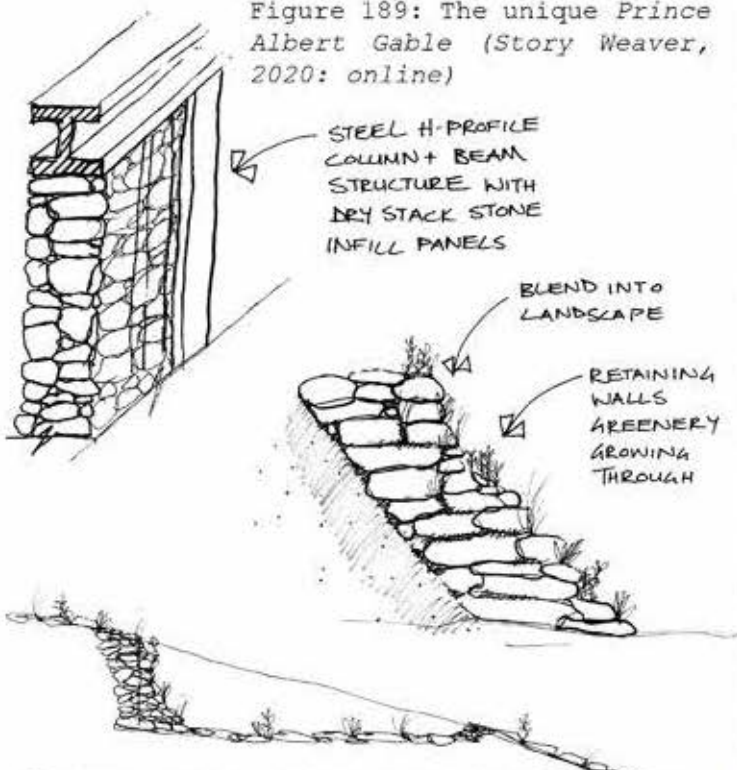 Figure 189: The unique Prince
Albert Gable (Story Weaver,
2020: online)
STEEL H-PROFILE
COLUMN + BEAM
STRUCTURE WITH
DRY STACK STONE
INFILL PANELS
BLEND INTO
LANDSCAPE
RETAINING
WALLS
GREENERY
GROWING
THROUGH